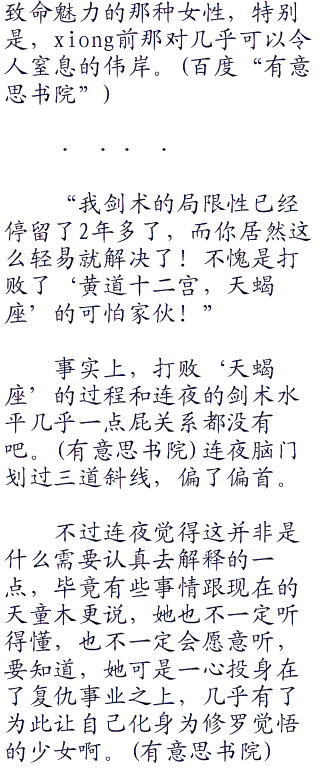 致命魅力的那种女性，特别
是，xiong前那对几乎可以令
人窒息的伟岸。(百度“有意
思书院”)
． ．．．
“我剑术的局限性已经
停留了2年多了，而你居然这
么轻易就解决了！不愧是打
败了‘黄道十二宫，天蝎
座’的可怕家伙！”
事实上，打败‘天蝎
座’的过程和连夜的剑术水
平几乎一点屁关系都没有
吧。(有意思书院)连夜脑门
划过三道斜线，偏了偏首。
不过连夜觉得这并非是
什么需要认真去解释的一
点，毕竟有些事情跟现在的
天童木更说，她也不一定听
得懂，也不一定会愿意听，
要知道，她可是一心投身在
了复仇事业之上，几乎有了
为此让自己化身为修罗觉悟
的少女啊。(有意思书院)